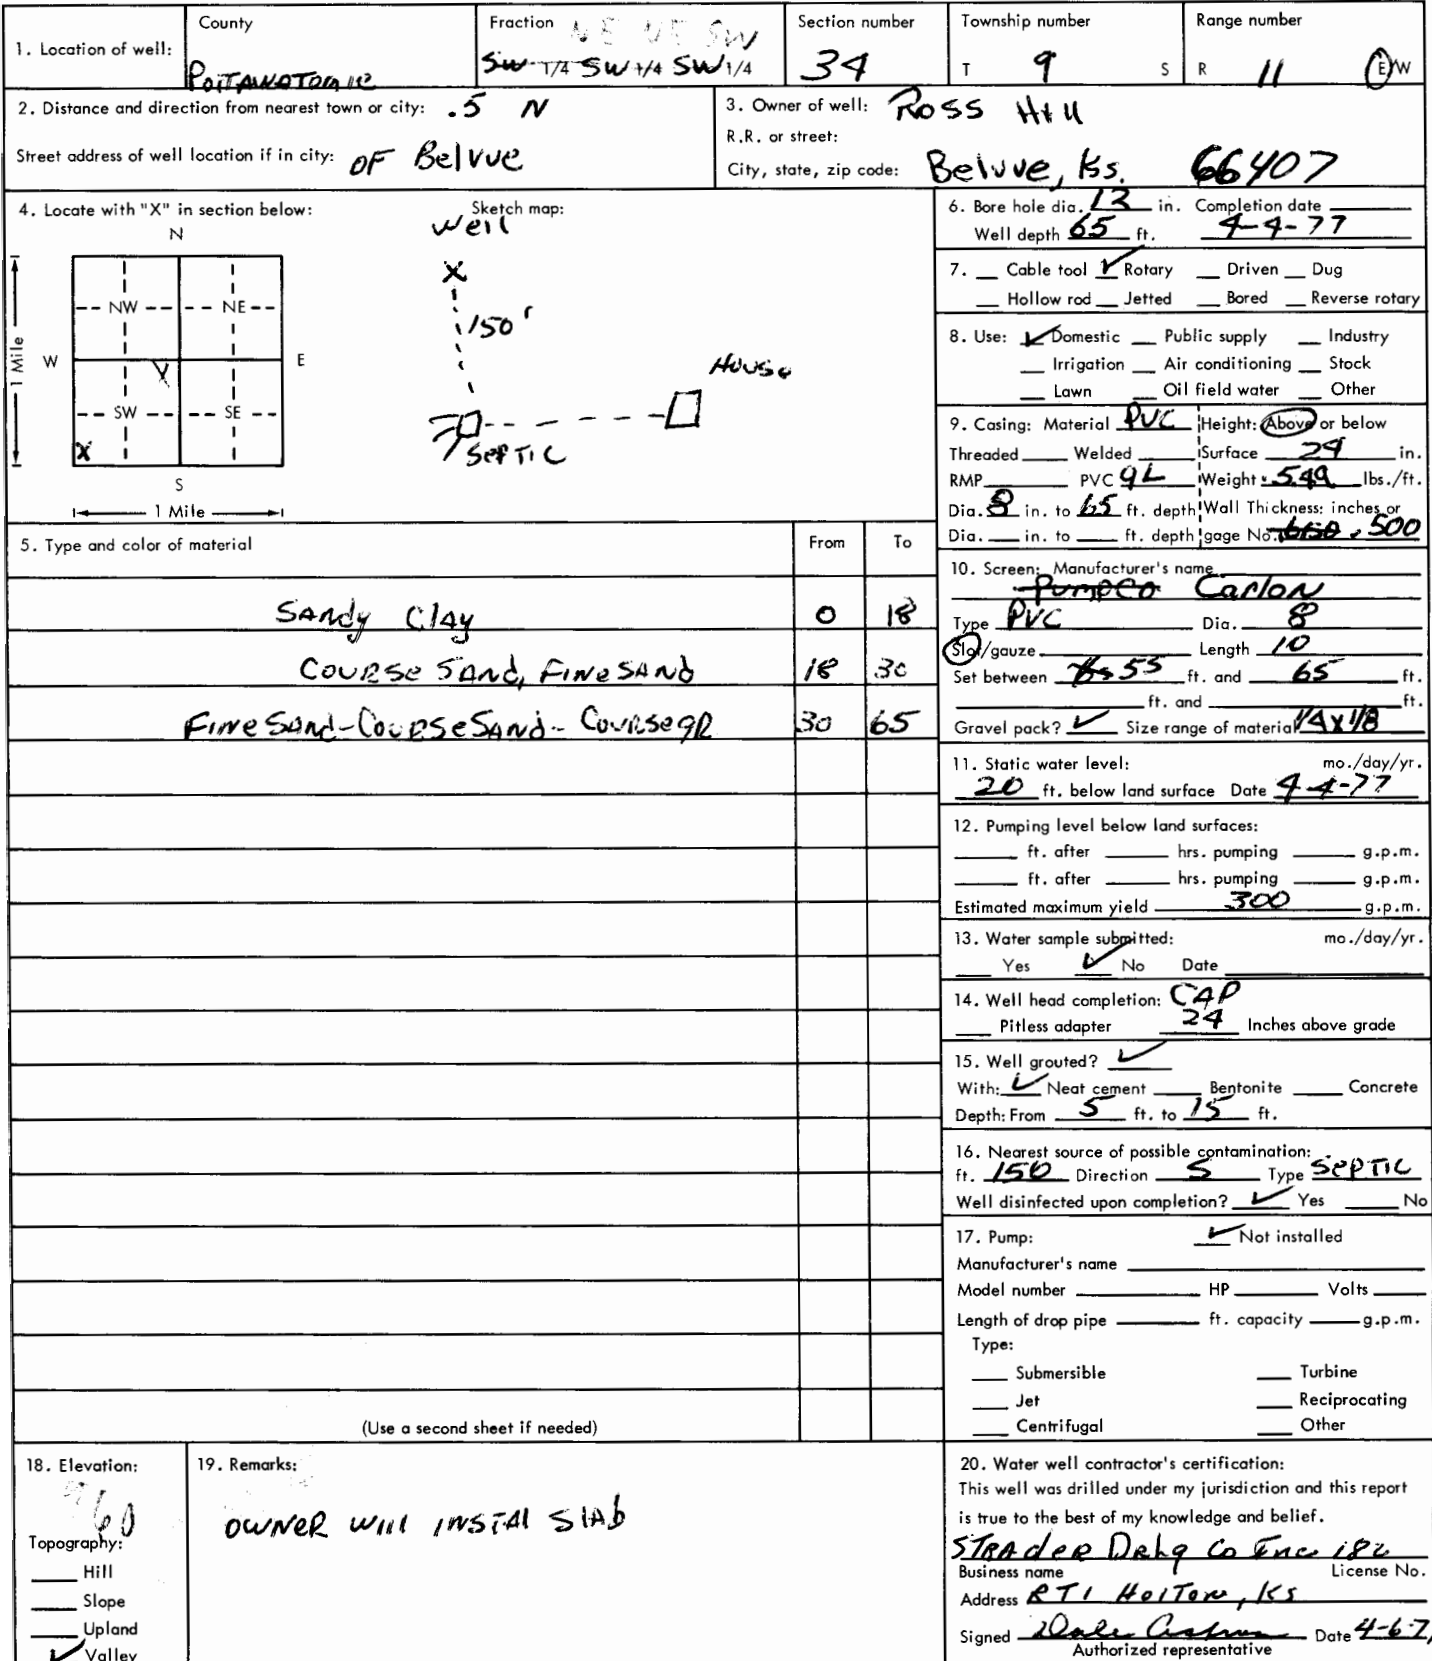 1. Location of well:
County
Pottawatomie
Fraction
NE NE SW
SW 1/4 SW 1/4 SW 1/4
Section number
34
Township number
T 9 S
Range number
R 11 E/W
2. Distance and direction from nearest town or city: .5 N
Street address of well location if in city: OF Belvue
3. Owner of well: Ross Hill
R.R. or street:
City, state, zip code: Belvue, Ks. 66407
4. Locate with "X" in section below:
N
NW NE
W E
X
SW SE
X
S
1 Mile
1 Mile
Sketch map:
Well
X
150'
House
SEPTIC
5. Type and color of material From To
Sandy Clay 0 18
Course Sand, Fine Sand 18 30
Fine Sand-Course Sand-Course gr 30 65
(Use a second sheet if needed)
6. Bore hole dia. 13 in. Completion date
Well depth 65 ft. 4-4-77
7. Cable tool ✓ Rotary Driven Dug
Hollow rod Jetted Bored Reverse rotary
8. Use: ✓ Domestic Public supply Industry
Irrigation Air conditioning Stock
Lawn Oil field water Other
9. Casing: Material PVC Height: Above or below
Threaded Welded Surface 24 in.
RMP PVC gL Weight .549 lbs./ft.
Dia. 8 in. to 65 ft. depth Wall Thickness: inches or
Dia. in. to ft. depth gage No. .500
10. Screen: Manufacturer's name
Pumpco Carlon
Type PVC Dia. 8
Slot/gauze Length 10
Set between 55 ft. and 65 ft.
ft. and ft.
Gravel pack? ✓ Size range of material 1/4 x 1/8
11. Static water level: mo./day/yr.
20 ft. below land surface Date 4-4-77
12. Pumping level below land surfaces:
ft. after hrs. pumping g.p.m.
ft. after hrs. pumping g.p.m.
Estimated maximum yield 300 g.p.m.
13. Water sample submitted: mo./day/yr.
Yes ✓ No Date
14. Well head completion: CAP
Pitless adapter 24 Inches above grade
15. Well grouted? ✓
With: ✓ Neat cement Bentonite Concrete
Depth: From 5 ft. to 15 ft.
16. Nearest source of possible contamination:
ft. 150 Direction S Type SEPTIC
Well disinfected upon completion? ✓ Yes No
17. Pump: ✓ Not installed
Manufacturer's name
Model number HP Volts
Length of drop pipe ft. capacity g.p.m.
Type:
Submersible Turbine
Jet Reciprocating
Centrifugal Other
18. Elevation:
960
Topography:
Hill
Slope
Upland
✓ Valley
19. Remarks:
OWNER WILL INSTAL SLAB
20. Water well contractor's certification:
This well was drilled under my jurisdiction and this report
is true to the best of my knowledge and belief.
STRADER Drlg Co Inc 182
Business name License No.
Address RT1 Holton, Ks
Signed Dale Date 4-6-7
Authorized representative